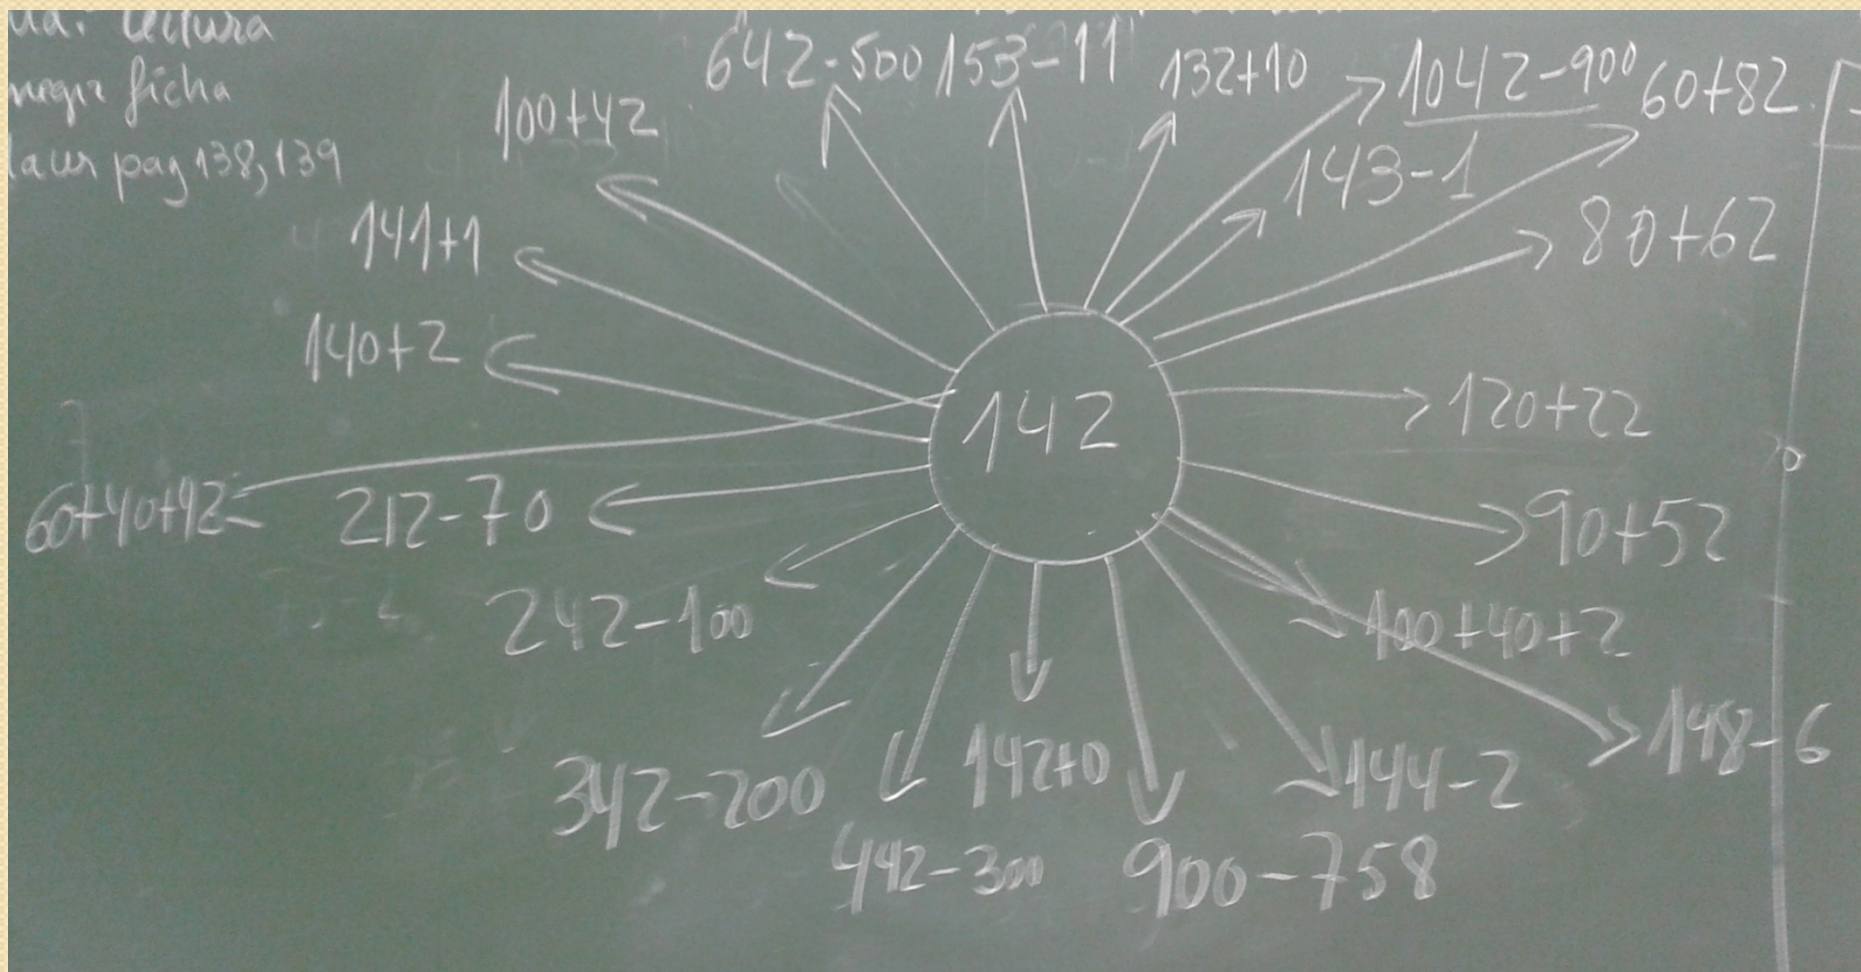 lectura
ficha
pag 138,139
100+42
642-500
153-11
132+10
1042-900
60+82
143-1
80+62
141+1
140+2
142
120+22
60+40+42
212-70
90+52
242-100
100+40+2
148-6
342-200
142+0
144-2
442-300
900-758